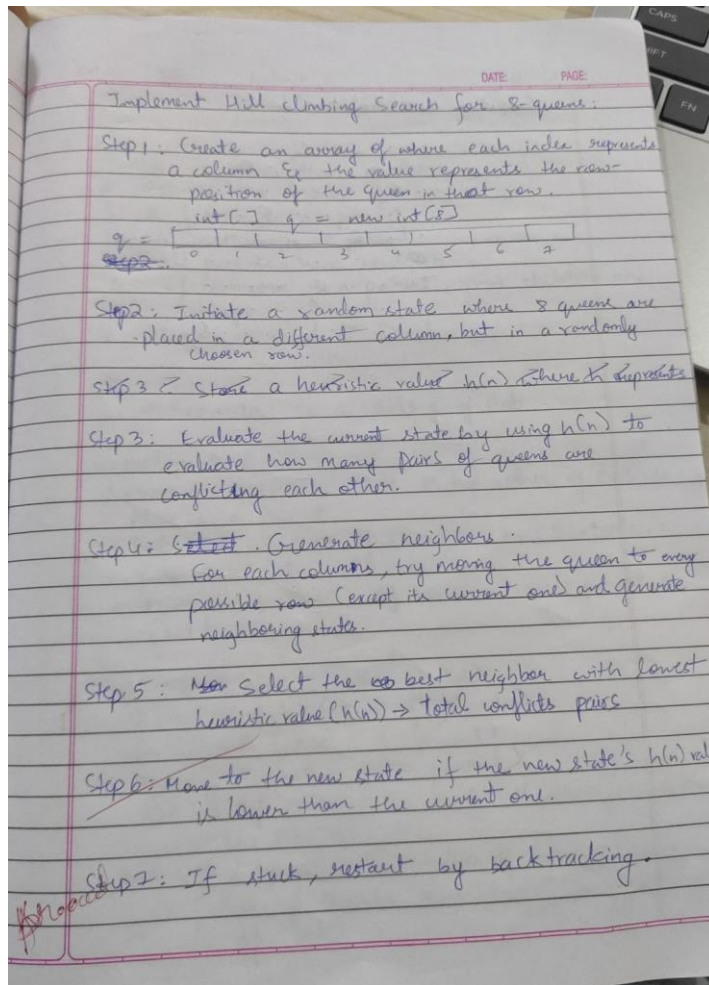 CAPS
SHIFT
FN
DATE: PAGE:
Implement Hill climbing Search for 8-queens:
Step 1: Create an array of where each index represents
a column & the value represents the row-
position of the queen in that row.
int[] q = new int[8]
q =
0 1 2 3 4 5 6 7
Step 2:
Step 2: Initiate a random state where 8 queens are
placed in a different column, but in a randomly
choosen row.
Step 3 : Store a heuristic value h(n) where h represents
Step 3: Evaluate the current state by using h(n) to
evaluate how many pairs of queens are
conflicting each other.
Step 4: Select. Generate neighbors.
For each columns, try moving the queen to every
possible row (except its current one) and generate
neighboring states.
Step 5: Select the best neighbor with lowest
heuristic value (h(n)) → total conflicts pairs
Step 6: Move to the new state if the new state's h(n) val
is lower than the current one.
Step 7: If stuck, restart by backtracking.